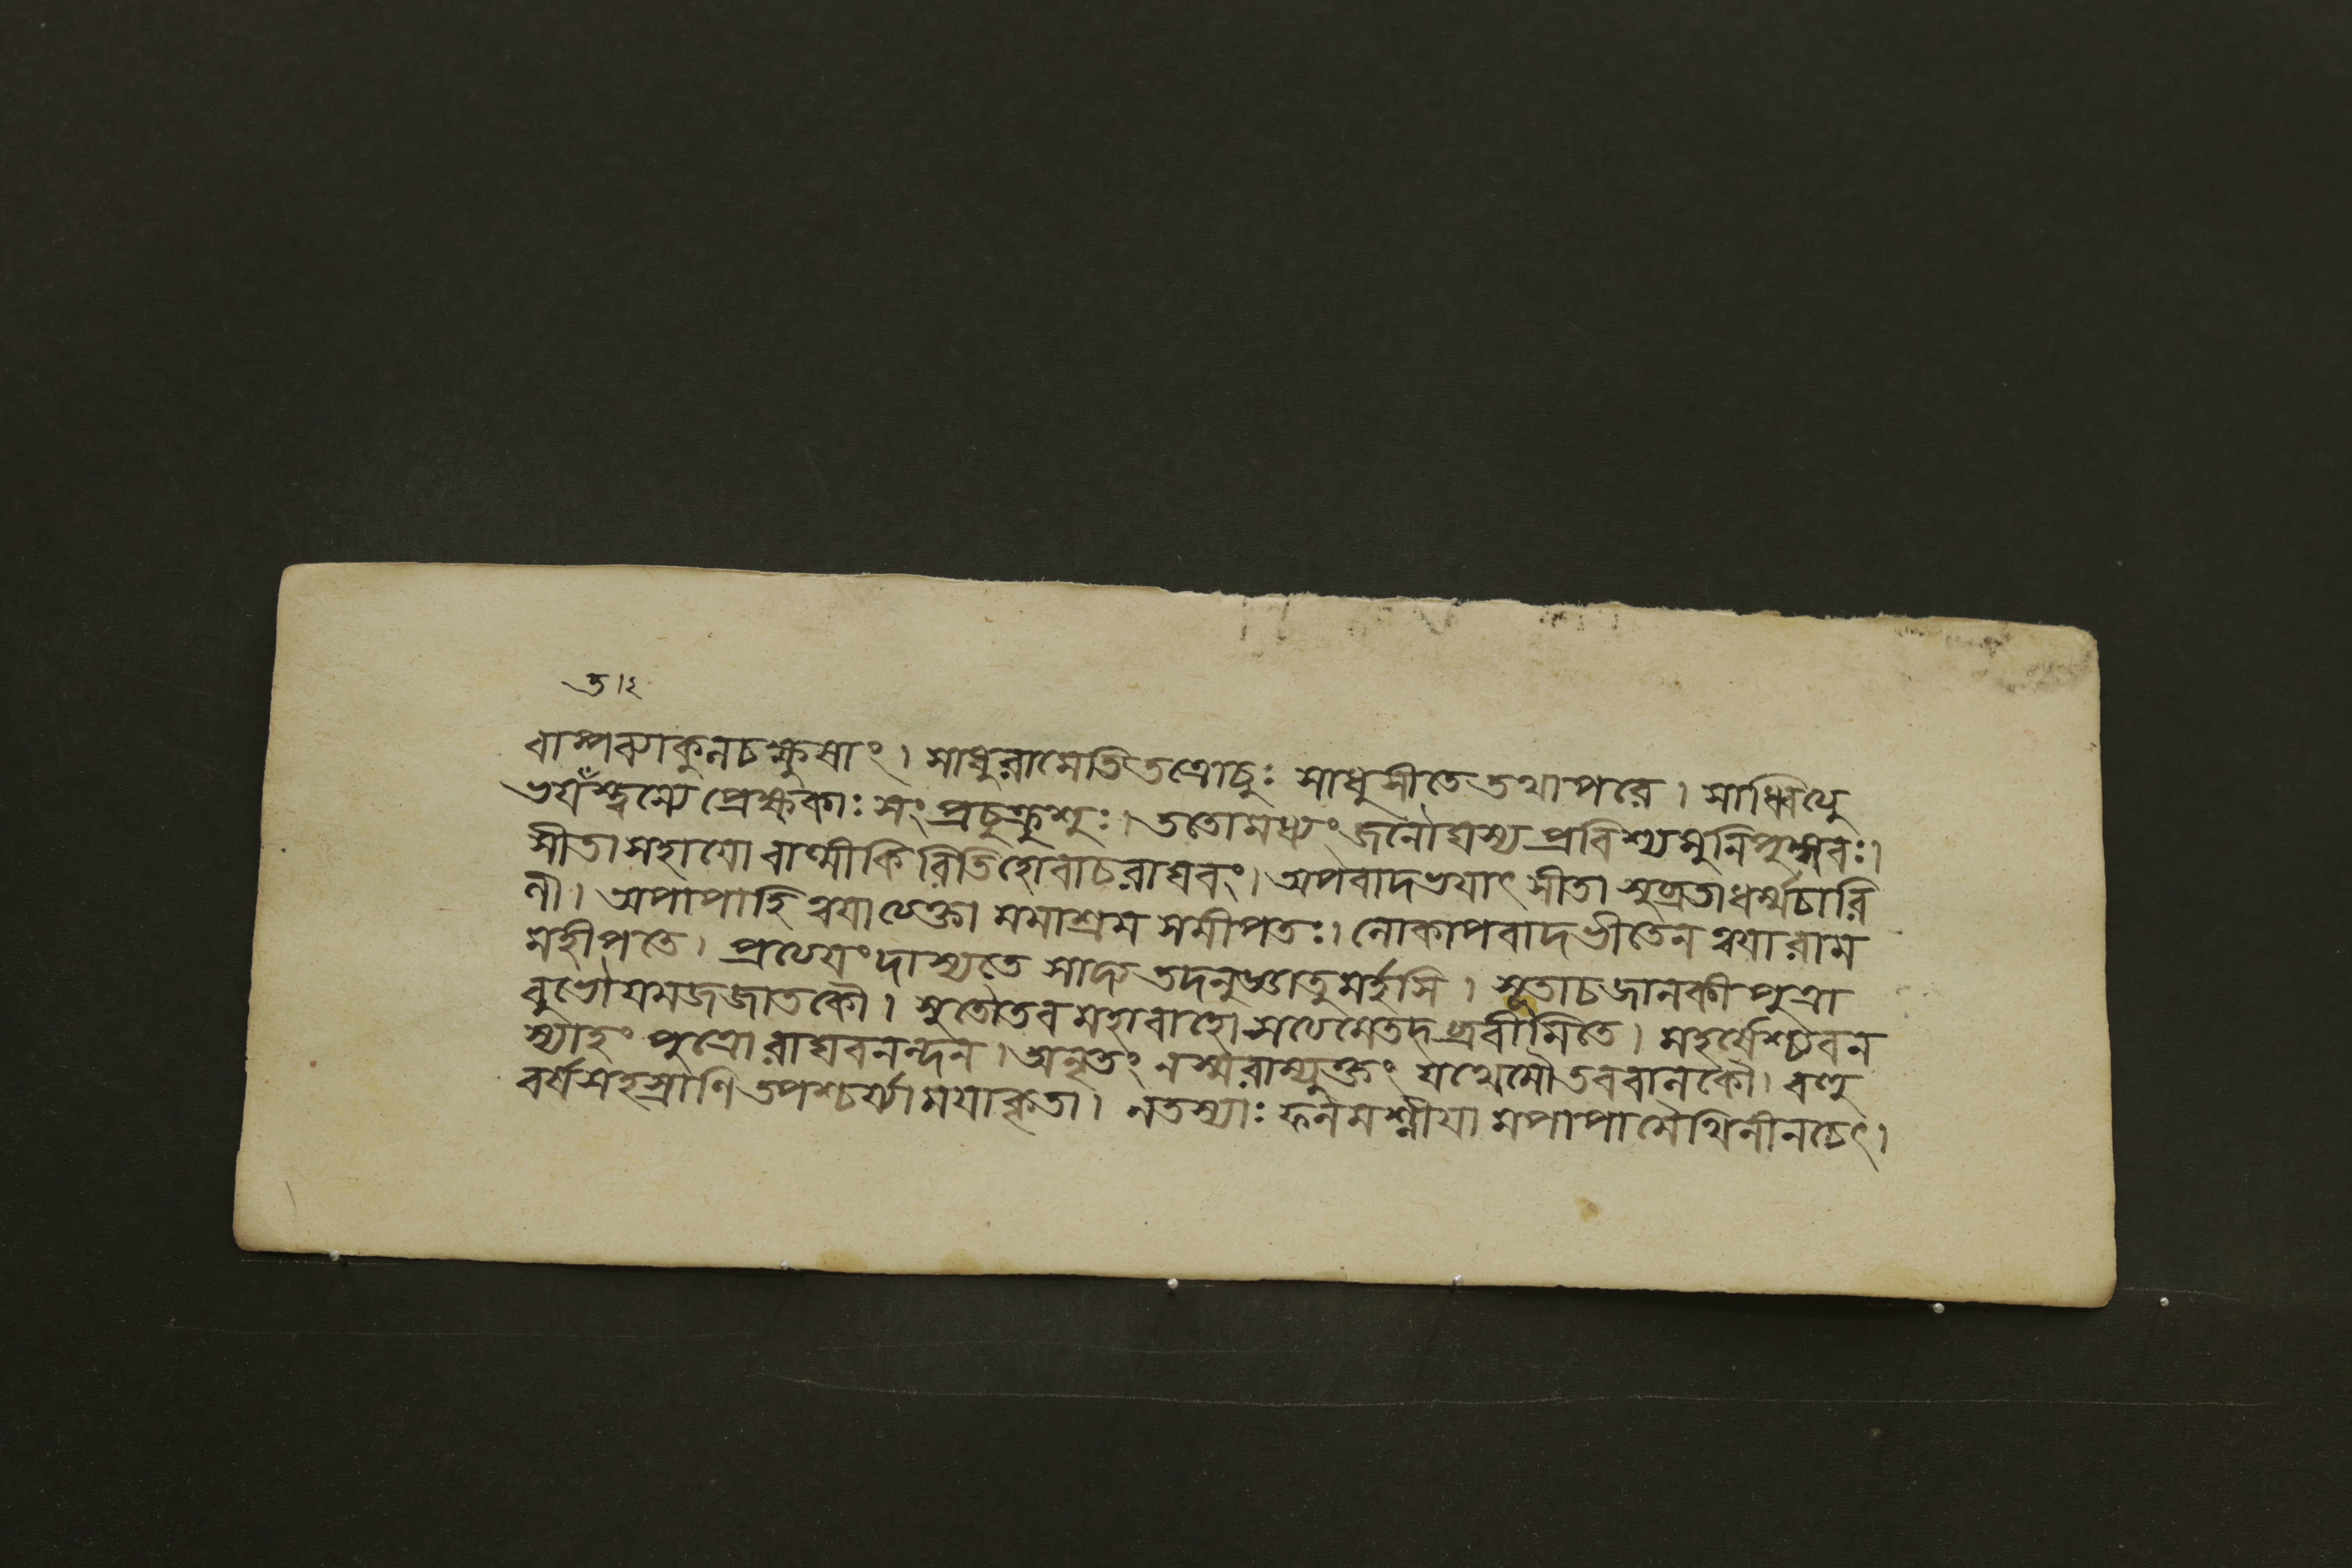 বাষ্পব্যাকুলচক্ষুষাং । সাধুরামেতিতত্রোচুঃ সাধুসীতেতথাপরে । সাধ্বিত্যু
প্রেক্ষকাঃ সংপ্রচুক্রুশুঃ । ততোমধ্যং জনৌঘস্য প্রবিশ্যমুনিপুঙ্গবঃ।
সীতাসহাযো বাল্মীকিরিতিহোবাচরাঘবং। অপবাদভযাৎ সীতা সুব্রতাধর্ম্মচারি
ণী। অপাপাহি ত্বযাত্যক্তা মমাশ্রম সমীপতঃ। লোকাপবাদভীতেন ত্বযারাম
মহীপতে। প্রত্যযংদাস্যতে সাদ্য তদনুজ্ঞাতুমর্হসি । সূতাচজানকীপুত্রা
বুভৌযমজজাতকৌ। সুতৌতবমহাবাহো সত্যমেতদ্ব্রবীমিতে। মহর্ষেশ্চ্যবন
স্যাহং পুত্রো রাঘবনন্দন। অনৃতং নস্মরাম্যুক্তং যথেমৌতববালকৌ। বহু
বর্ষসহস্রাণি তপশ্চর্য্যাময়াকৃতা। নতস্যাঃ ফলমশ্নীযা মপাপামৈথিলীনচেৎ।